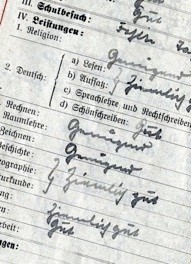 III. Schulbesuch: Gut
IV. Leistungen:
1. Religion:
2. Deutsch:
a) Lesen: Genügend
b) Aufsatz: Ziemlich
c) Sprachlehre und Rechtschreiben
d) Schönschreiben: Gut
Rechnen:
Raumlehre: Genügend
Zeichnen:
Geschichte: Genügend
Ziemlich gut
Ziemlich gut
Gut